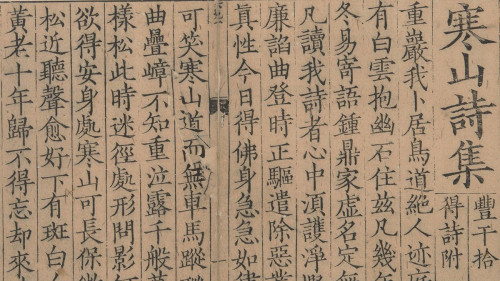 寒山詩集
豐干拾
得詩附
重巖我卜居鳥道絕人迹庭
有白雲抱幽石住兹凡幾年
冬易寄語鍾鼎家虚名定無
凡讀我詩者心中湏護淨
廉諂曲登時正驅遣除惡業
眞性今日得佛身急急如律
可笑寒山道而無車馬蹤
曲疊嶂不知重泣露千般草
樣松此時迷徑處形問影何
欲得安身處寒山可長保微
松近聽聲愈好下有斑白人
黃老十年歸不得忘却來